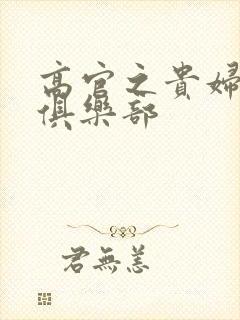 高官之貴婦
俱樂部
君無恙